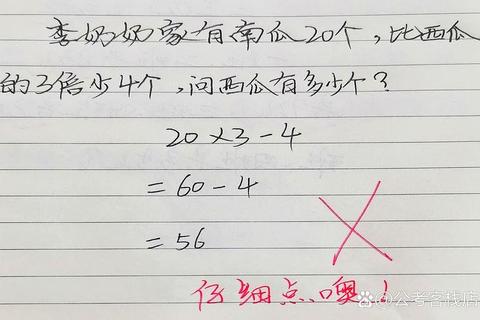 李奶奶家有南瓜20个,比西瓜
的3倍少4个,问西瓜有多少个?
20×3-4
=60-4
=56
仔细点噢!
@公考客栈店